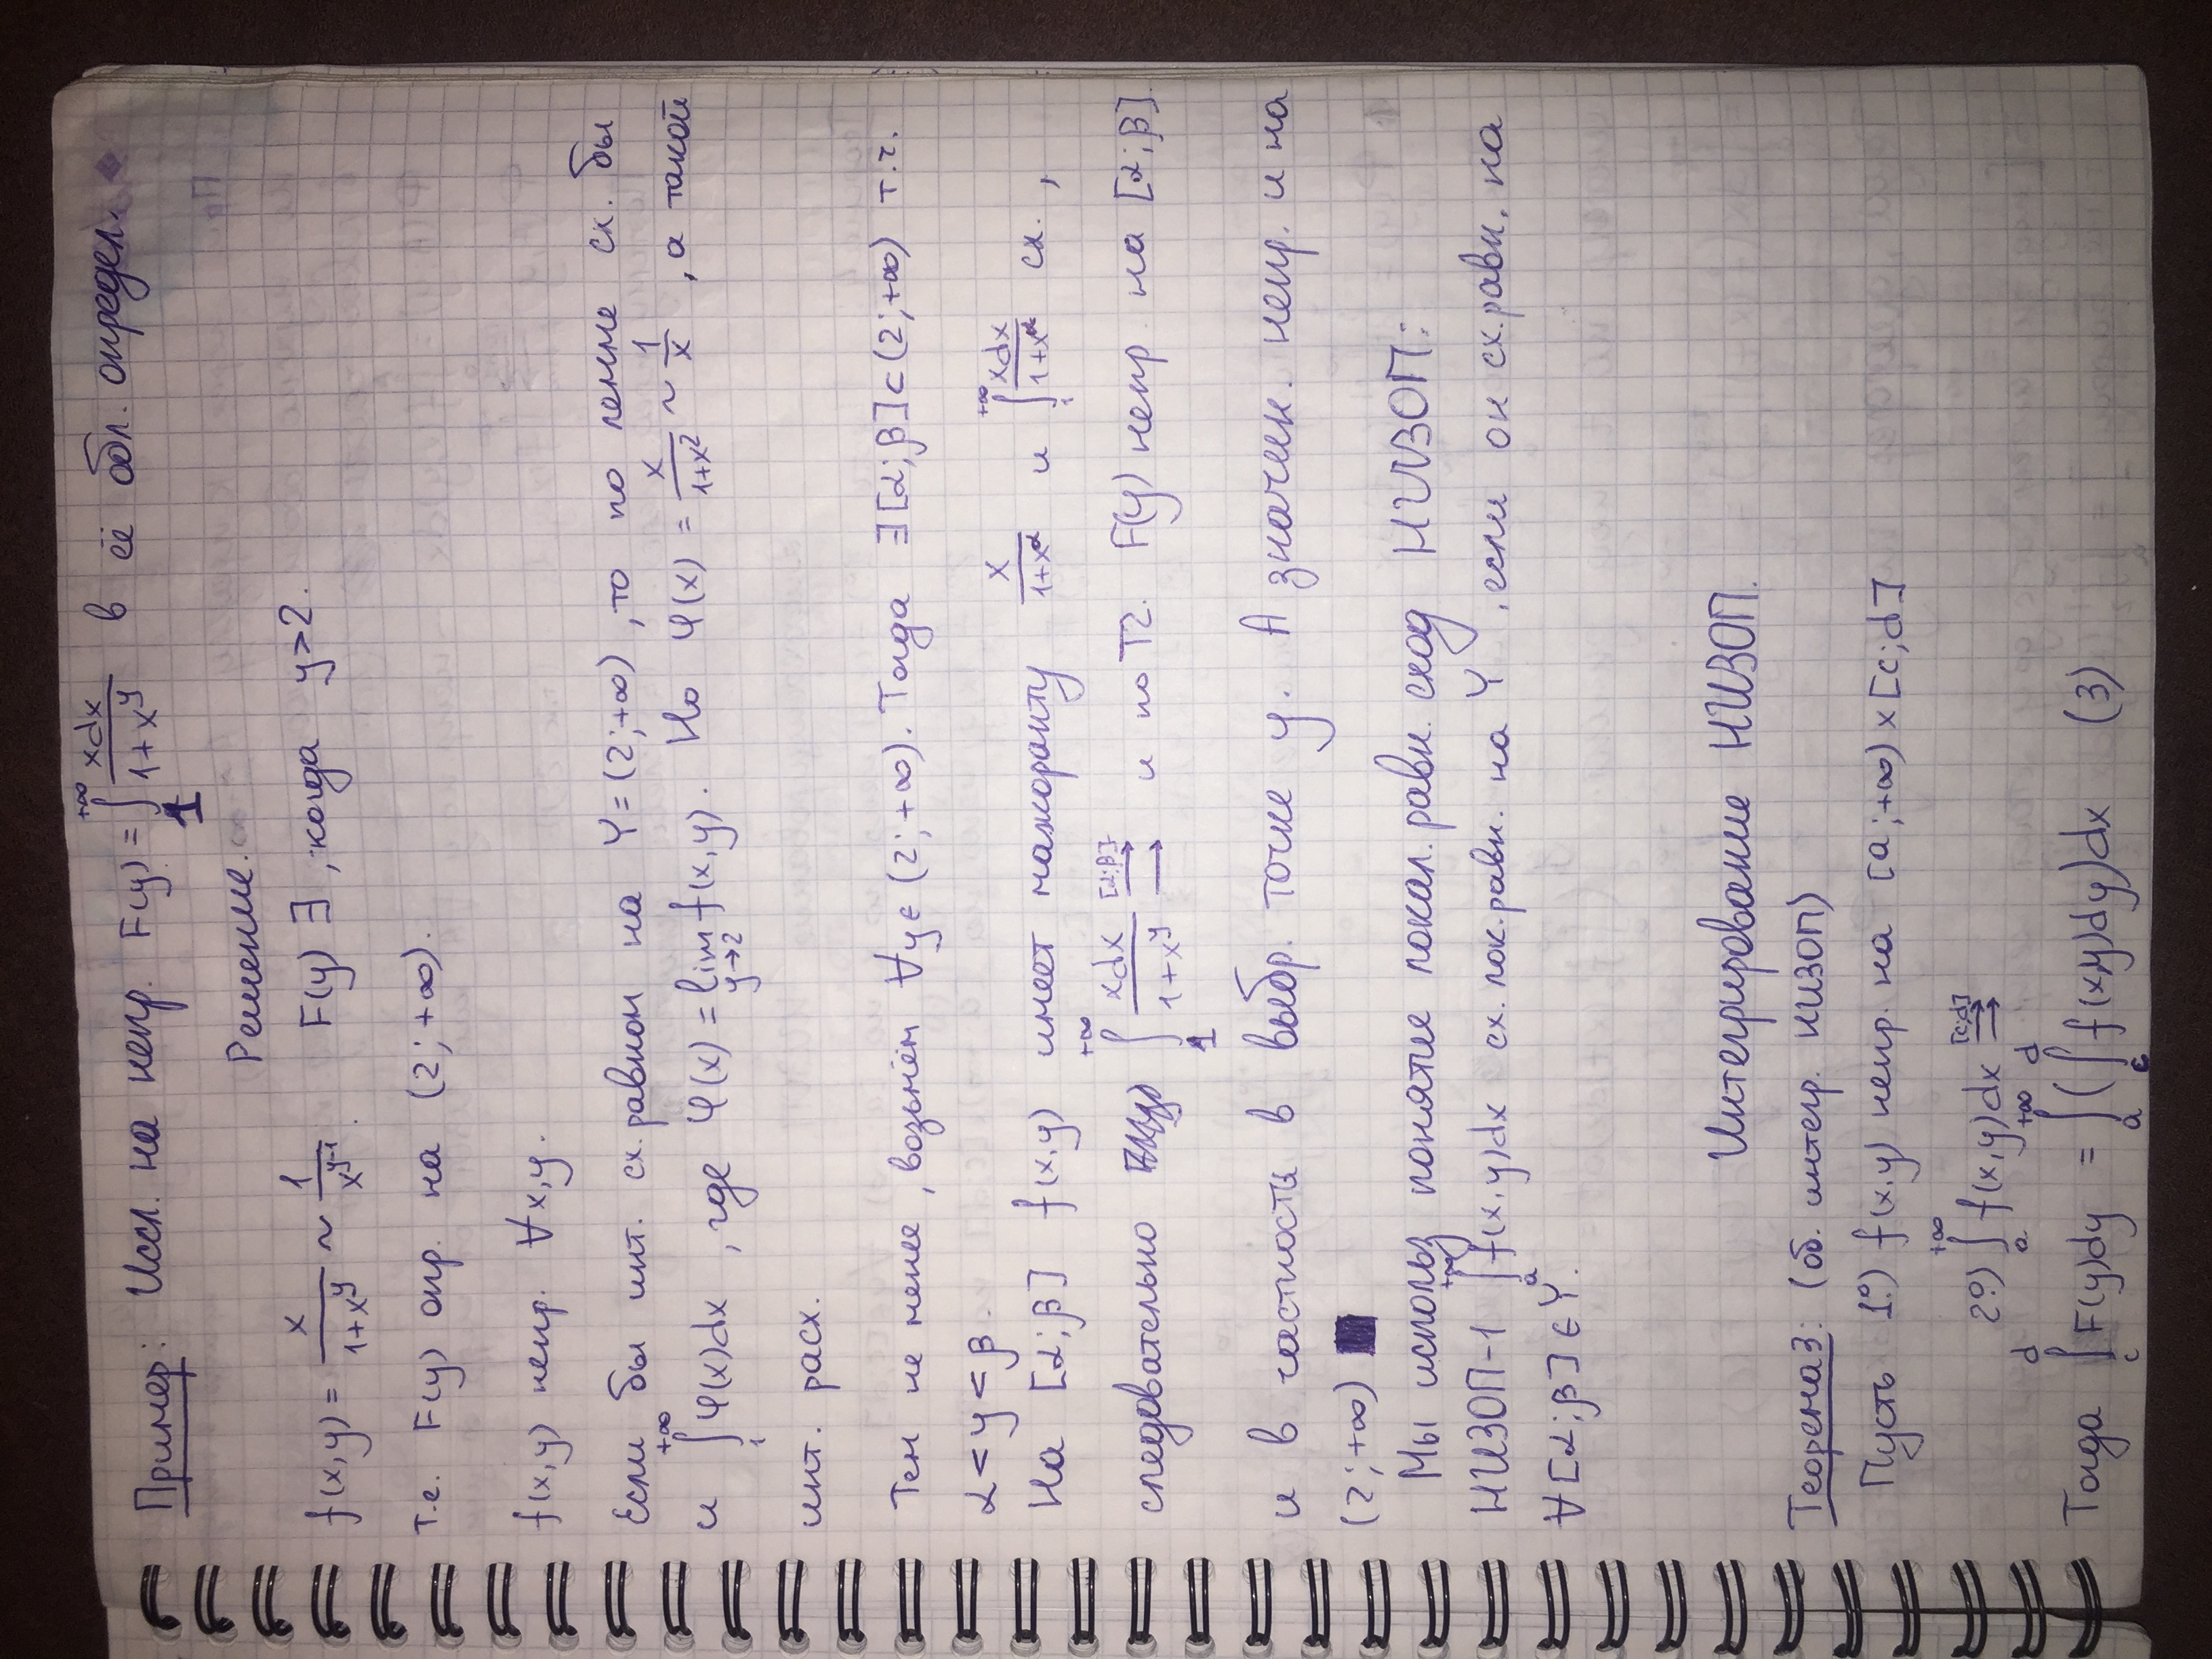 Пример: Иссл. на непр. F(y) = ∫₁^{+∞} xdx/(1+x^y) в её обл. определ.
Решение.
f(x,y) = x/(1+x^y) ~ 1/x^{y-1}. F(y) ∃, когда y>2.
т.е. F(y) опр. на (2;+∞).
f(x,y) непр. ∀x,y.
Если бы инт. сх. равном на Y=(2;+∞), то по лемме сх. бы
и ∫₁^{+∞} φ(x)dx, где φ(x) = lim_{y→2} f(x,y). Но φ(x) = x/(1+x²) ~ 1/x, а такой
инт. расх.
Тем не менее, возьмём ∀y∈(2;+∞). Тогда ∃[α;β]⊂(2;+∞) т.ч.
α<y<β.
На [α;β] f(x,y) имеет мажоранту x/(1+x^α) и ∫₁^{+∞} xdx/(1+x^α) сх.,
следовательно ∫₁^{+∞} xdx/(1+x^y) ⇉^{[α;β]} и по Т2. F(y) непр. на [α;β].
и в частность в выбр. точке y. А значин. непр. и на
(2;+∞) ■
Мы использ понятие локал. равн. сход НИЗОП:
НИЗОП-1 ∫_a^{+∞} f(x,y)dx сх. лок. равн. на Y, если он сх. равн. на
∀[α;β]∈Y.
Интегрирование НИЗОП.
Теорема 3: (об. интегр. НИЗОП)
Пусть 1°.) f(x,y) непр. на [a;+∞)×[c;d]
2°.) ∫_a^{+∞} f(x,y)dx ⇉^{[c;d]}
Тогда ∫_c^d F(y)dy = ∫_a^{+∞} (∫_c^d f(x,y)dy)dx (3)